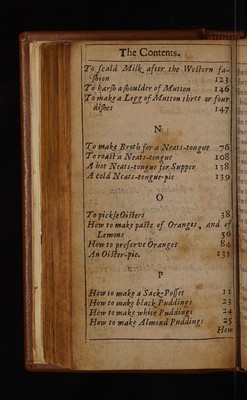 The Contents.
To scald Milk after the Western fa-
shion 123
To harsh a shoulder of Mutton 146
To make a Legg of Mutton three or four
dishes 147
N
To make Broth for a Neats-tongue 76
To roast a Neats-tongue 108
A hot Neats-tongue for Supper 138
A cold Neats-tongue-pie 139
O
To pickle Oisters 38
How to make paste of Oranges, and of
Lemons 56
How to preserve Oranges 84
An Oister-pie. 133
P
How to make a Sack-Posset 11
How to make black Puddings 23
How to make white Puddings 24
How to make Almond Puddings 25
How